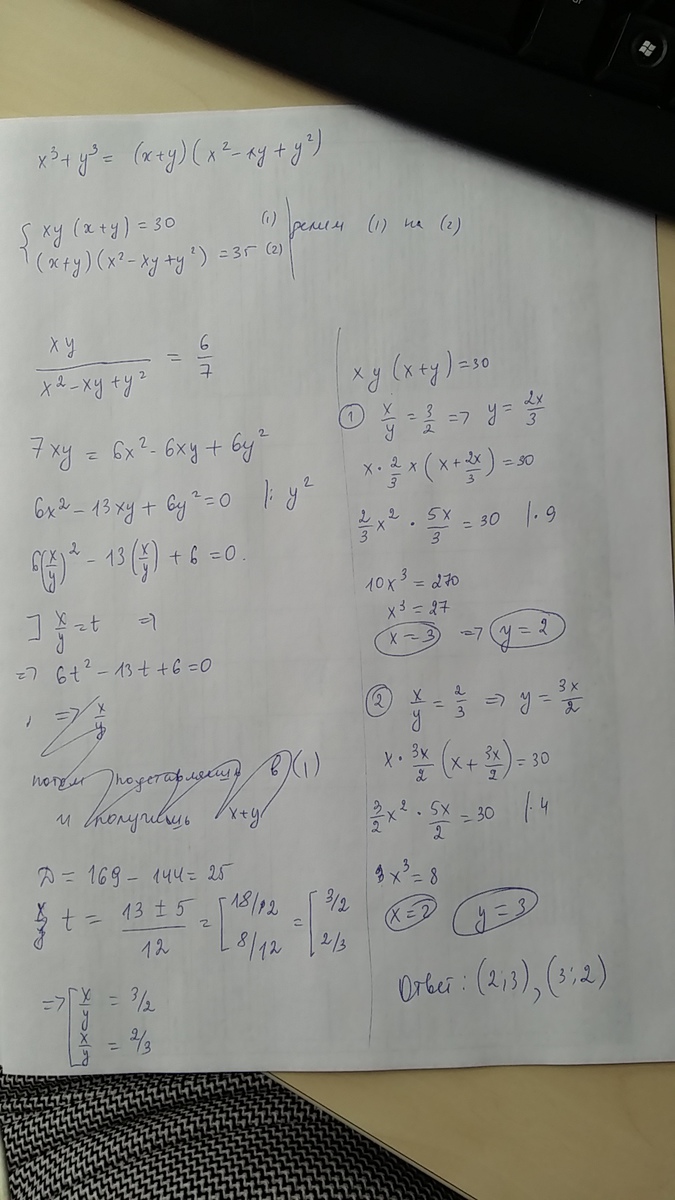 x³ + y³ = (x+y)(x² - xy + y²)
{ xy (x+y) = 30 (1)
(x+y)(x² - xy + y²) = 35 (2)
делим (1) на (2)
xy / (x² - xy + y²) = 6/7
7xy = 6x² - 6xy + 6y²
6x² - 13xy + 6y² = 0 |: y²
6(x/y)² - 13(x/y) + 6 = 0.
] x/y = t =>
=> 6t² - 13t + 6 = 0
=> x/y
потом подставляешь в (1)
и получишь x+y
D = 169 - 144 = 25
t = (13 ± 5)/12 = [ 18/12 8/12 = [ 3/2 2/3
=> [ x/y = 3/2
x/y = 2/3
xy (x+y) = 30
① x/y = 3/2 => y = 2x/3
x · 2/3 x (x + 2x/3) = 30
2/3 x² · 5x/3 = 30 | · 9
10x³ = 270
x³ = 27
x = 3 => y = 2
② x/y = 2/3 => y = 3x/2
x · 3x/2 (x + 3x/2) = 30
3/2 x² · 5x/2 = 30 |· 4
x³ = 8
x = 2 y = 3
Ответ: (2;3), (3;2)